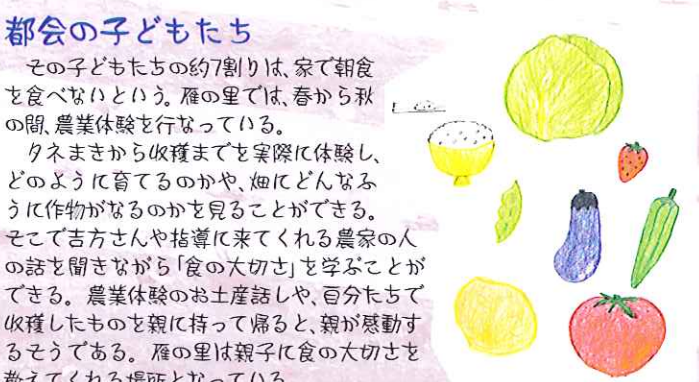 都会の子どもたち
その子どもたちの約7割りは、家で朝食
を食べないという。雁の里では、春から秋
の間、農業体験を行なっている。
タネまきから収穫までを実際に体験し、
どのように育てるのかや、畑にどんなふ
うに作物がなるのかを見ることができる。
そこで吉方さんや指導に来てくれる農家の人
の話を聞きながら「食の大切さ」を学ぶことが
できる。農業体験のお土産話しや、自分たちで
収穫したものを親に持って帰ると、親が感動す
るそうである。雁の里は親子に食の大切さを
教えてくれる場所となっている。